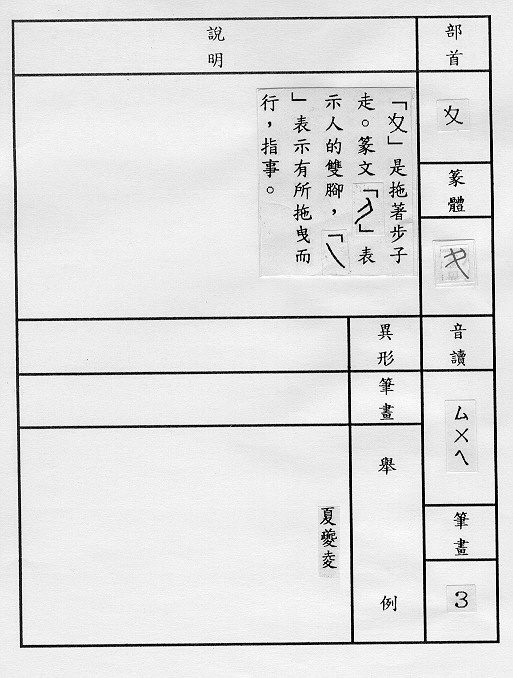 部首
夊
篆體
音讀
ㄙㄨㄟ
筆畫
3
說明
「夊」是拖著步子
走。篆文「」表
示人的雙腳，「㇏
」表示有所拖曳而
行，指事。
異形
筆畫
舉例
夏夔夌